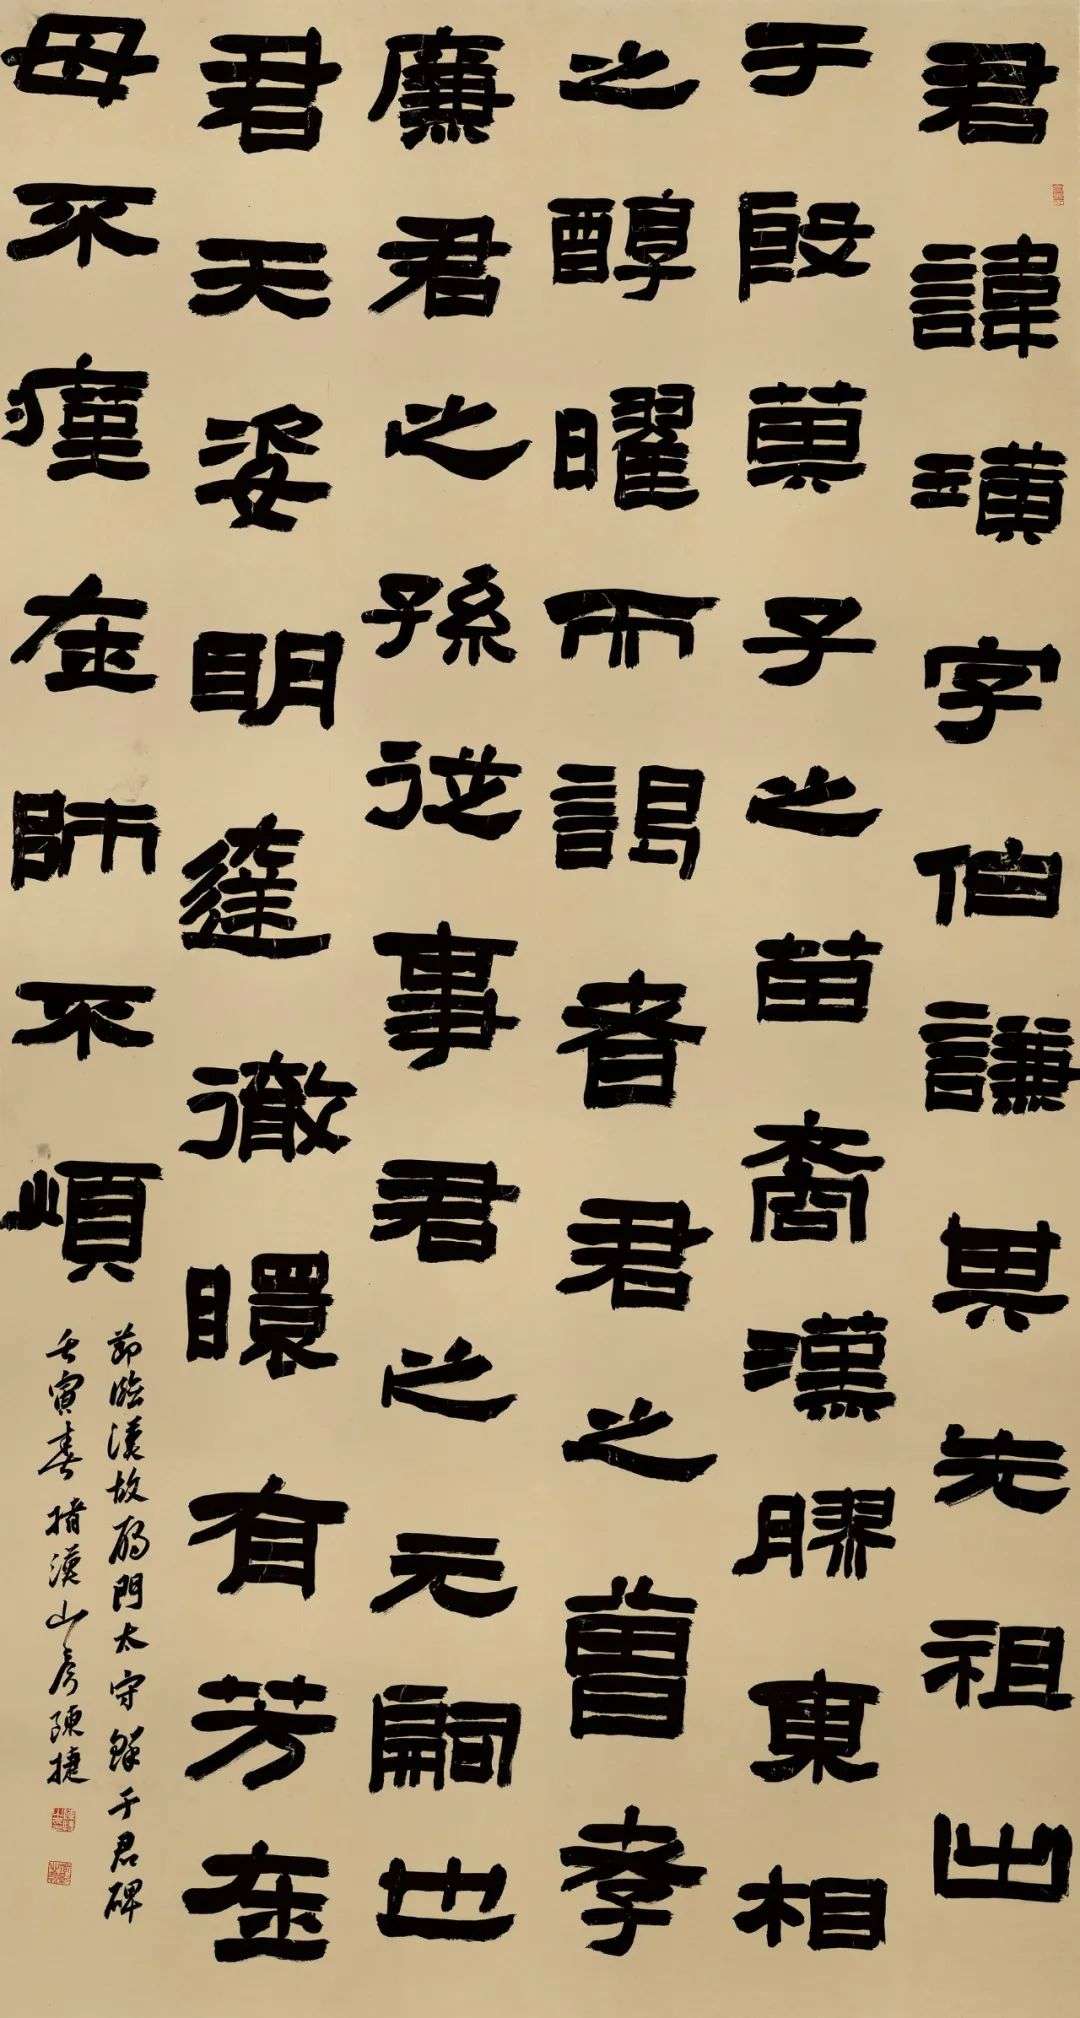 君諱璜字伯謙其先祖出
于殷箕子之苗裔漢膠東相
之醇曜而謁者君之曾孝
廉君之孫從事君之元嗣也
君天姿明達徹有芳在
母不瘽在師不煩
節臨漢故雁門太守鮮于君碑
壬寅春漢山房陳捷